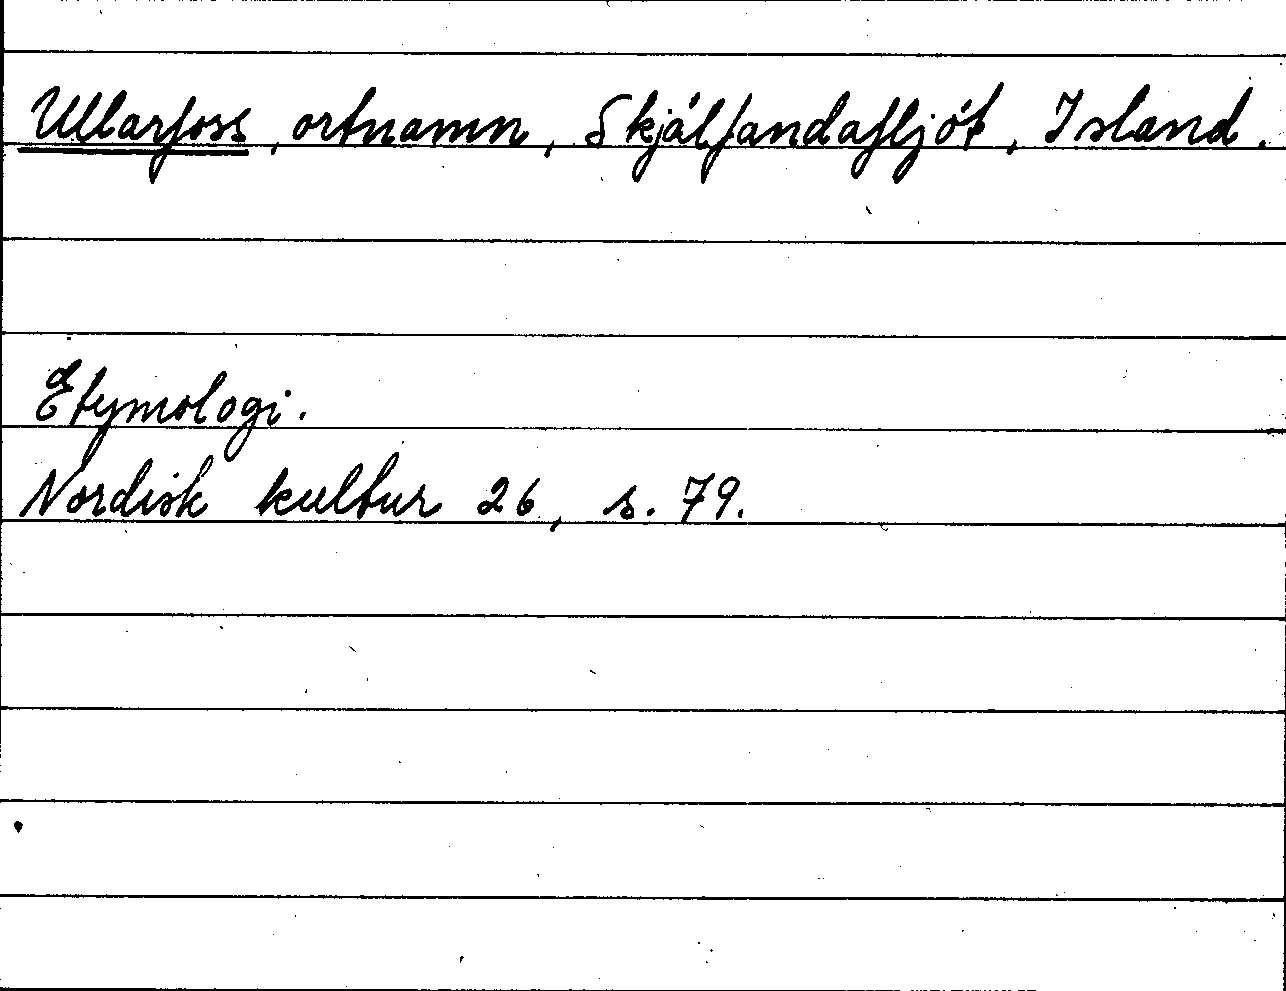 Ullarfoss, ortnamn, Skjálfandafljót, Island.
Etymologi.
Nordisk kultur 26, s. 79.